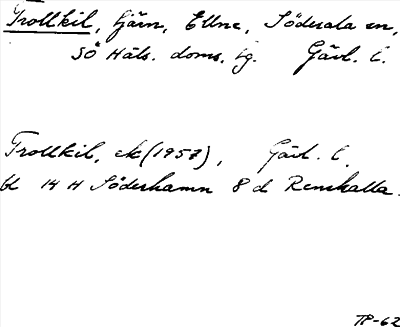 Trollkil, tjärn, Ellne, Söderala sn,
SÖ Häls. doms. tg. Gävl. l.
Trollkil, ek (1957), Gävl. l.
bl 14 H Söderhamn 8 d Renshalla.
TP-62